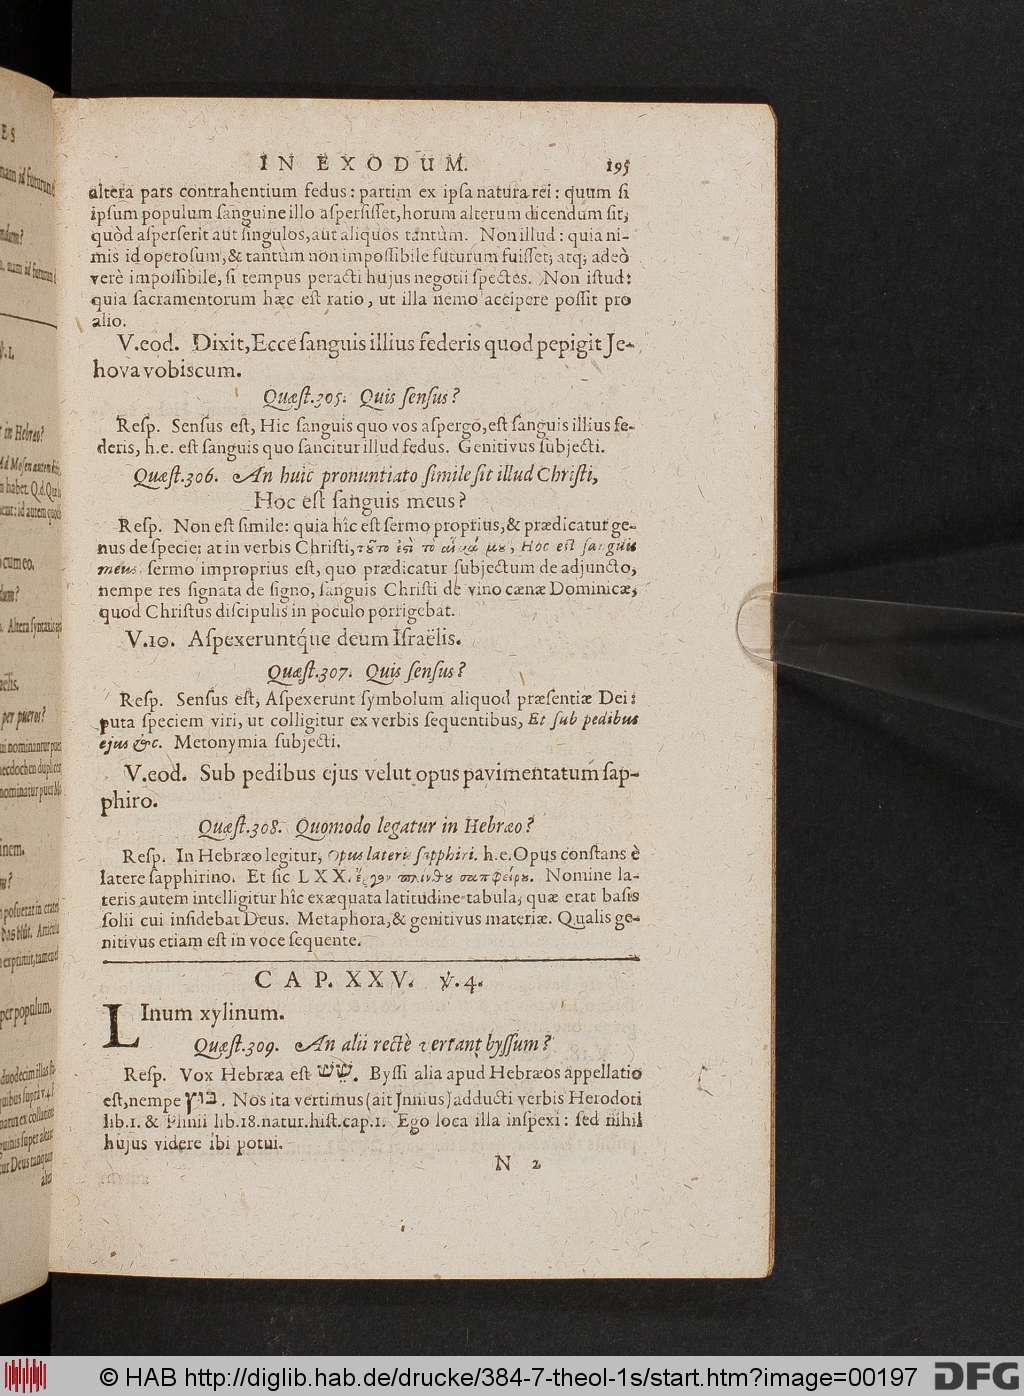 IN EXODUM. 195
altera pars contrahentium fedus: partim ex ipsa natura rei: quum si
ipsum populum sanguine illo aspersisset, horum alterum dicendum sit,
quòd asperserit aut singulos, aut aliquos tantùm. Non illud: quia ni-
mis id operosum, & tantùm non impossibile futurum fuisset; atq; adeò
verè impossibile, si tempus peracti hujus negotii spectes. Non istud:
quia sacramentorum hæc est ratio, ut illa nemo accipere possit pro
alio.
V.eod. Dixit, Ecce sanguis illius federis quod pepigit Je-
hova vobiscum.
Quæst.305. Quis sensus?
Resp. Sensus est, Hic sanguis quo vos aspergo, est sanguis illius fe-
deris, h.e. est sanguis quo sancitur illud fedus. Genitivus subjecti.
Quæst.306. An huic pronuntiato simile sit illud Christi,
Hoc est sanguis meus?
Resp. Non est simile: quia hîc est sermo proprius, & prædicatur ge-
nus de specie: at in verbis Christi, τοῦτο ἐστὶ τὸ αἷμά μου, Hoc est sanguis
meus, sermo improprius est, quo prædicatur subjectum de adjuncto,
nempe res signata de signo, sanguis Christi de vino cænæ Dominicæ,
quod Christus discipulis in poculo porrigebat.
V.10. Aspexeruntq́ue deum Israëlis.
Quæst.307. Quis sensus?
Resp. Sensus est, Aspexerunt symbolum aliquod præsentiæ Dei:
puta speciem viri, ut colligitur ex verbis sequentibus, Et sub pedibus
ejus &c. Metonymia subjecti.
V.eod. Sub pedibus ejus velut opus pavimentatum sap-
phiro.
Quæst.308. Quomodo legatur in Hebræo?
Resp. In Hebræo legitur, Opus lateris sapphiri. h.e. Opus constans è
latere sapphirino. Et sic LXX. ἔργον πλίνθου σαπφείρου. Nomine la-
teris autem intelligitur hîc exæquata latitudine tabula, quæ erat basis
solii cui insidebat Deus. Metaphora, & genitivus materiæ. Qualis ge-
nitivus etiam est in voce sequente.
CAP. XXV. ℣.4.
LInum xylinum.
Quæst.309. An alii rectè vertant byssum?
Resp. Vox Hebræa est שֵׁשׁ. Byssi alia apud Hebræos appellatio
est, nempe בוץ. Nos ita vertimus (ait Junius) adducti verbis Herodoti
lib.1. & Plinii lib.18. natur. hist. cap.1. Ego loca illa inspexi: sed nihil
hujus videre ibi potui.
N 2
© HAB http://diglib.hab.de/drucke/384-7-theol-1s/start.htm?image=00197 DFG